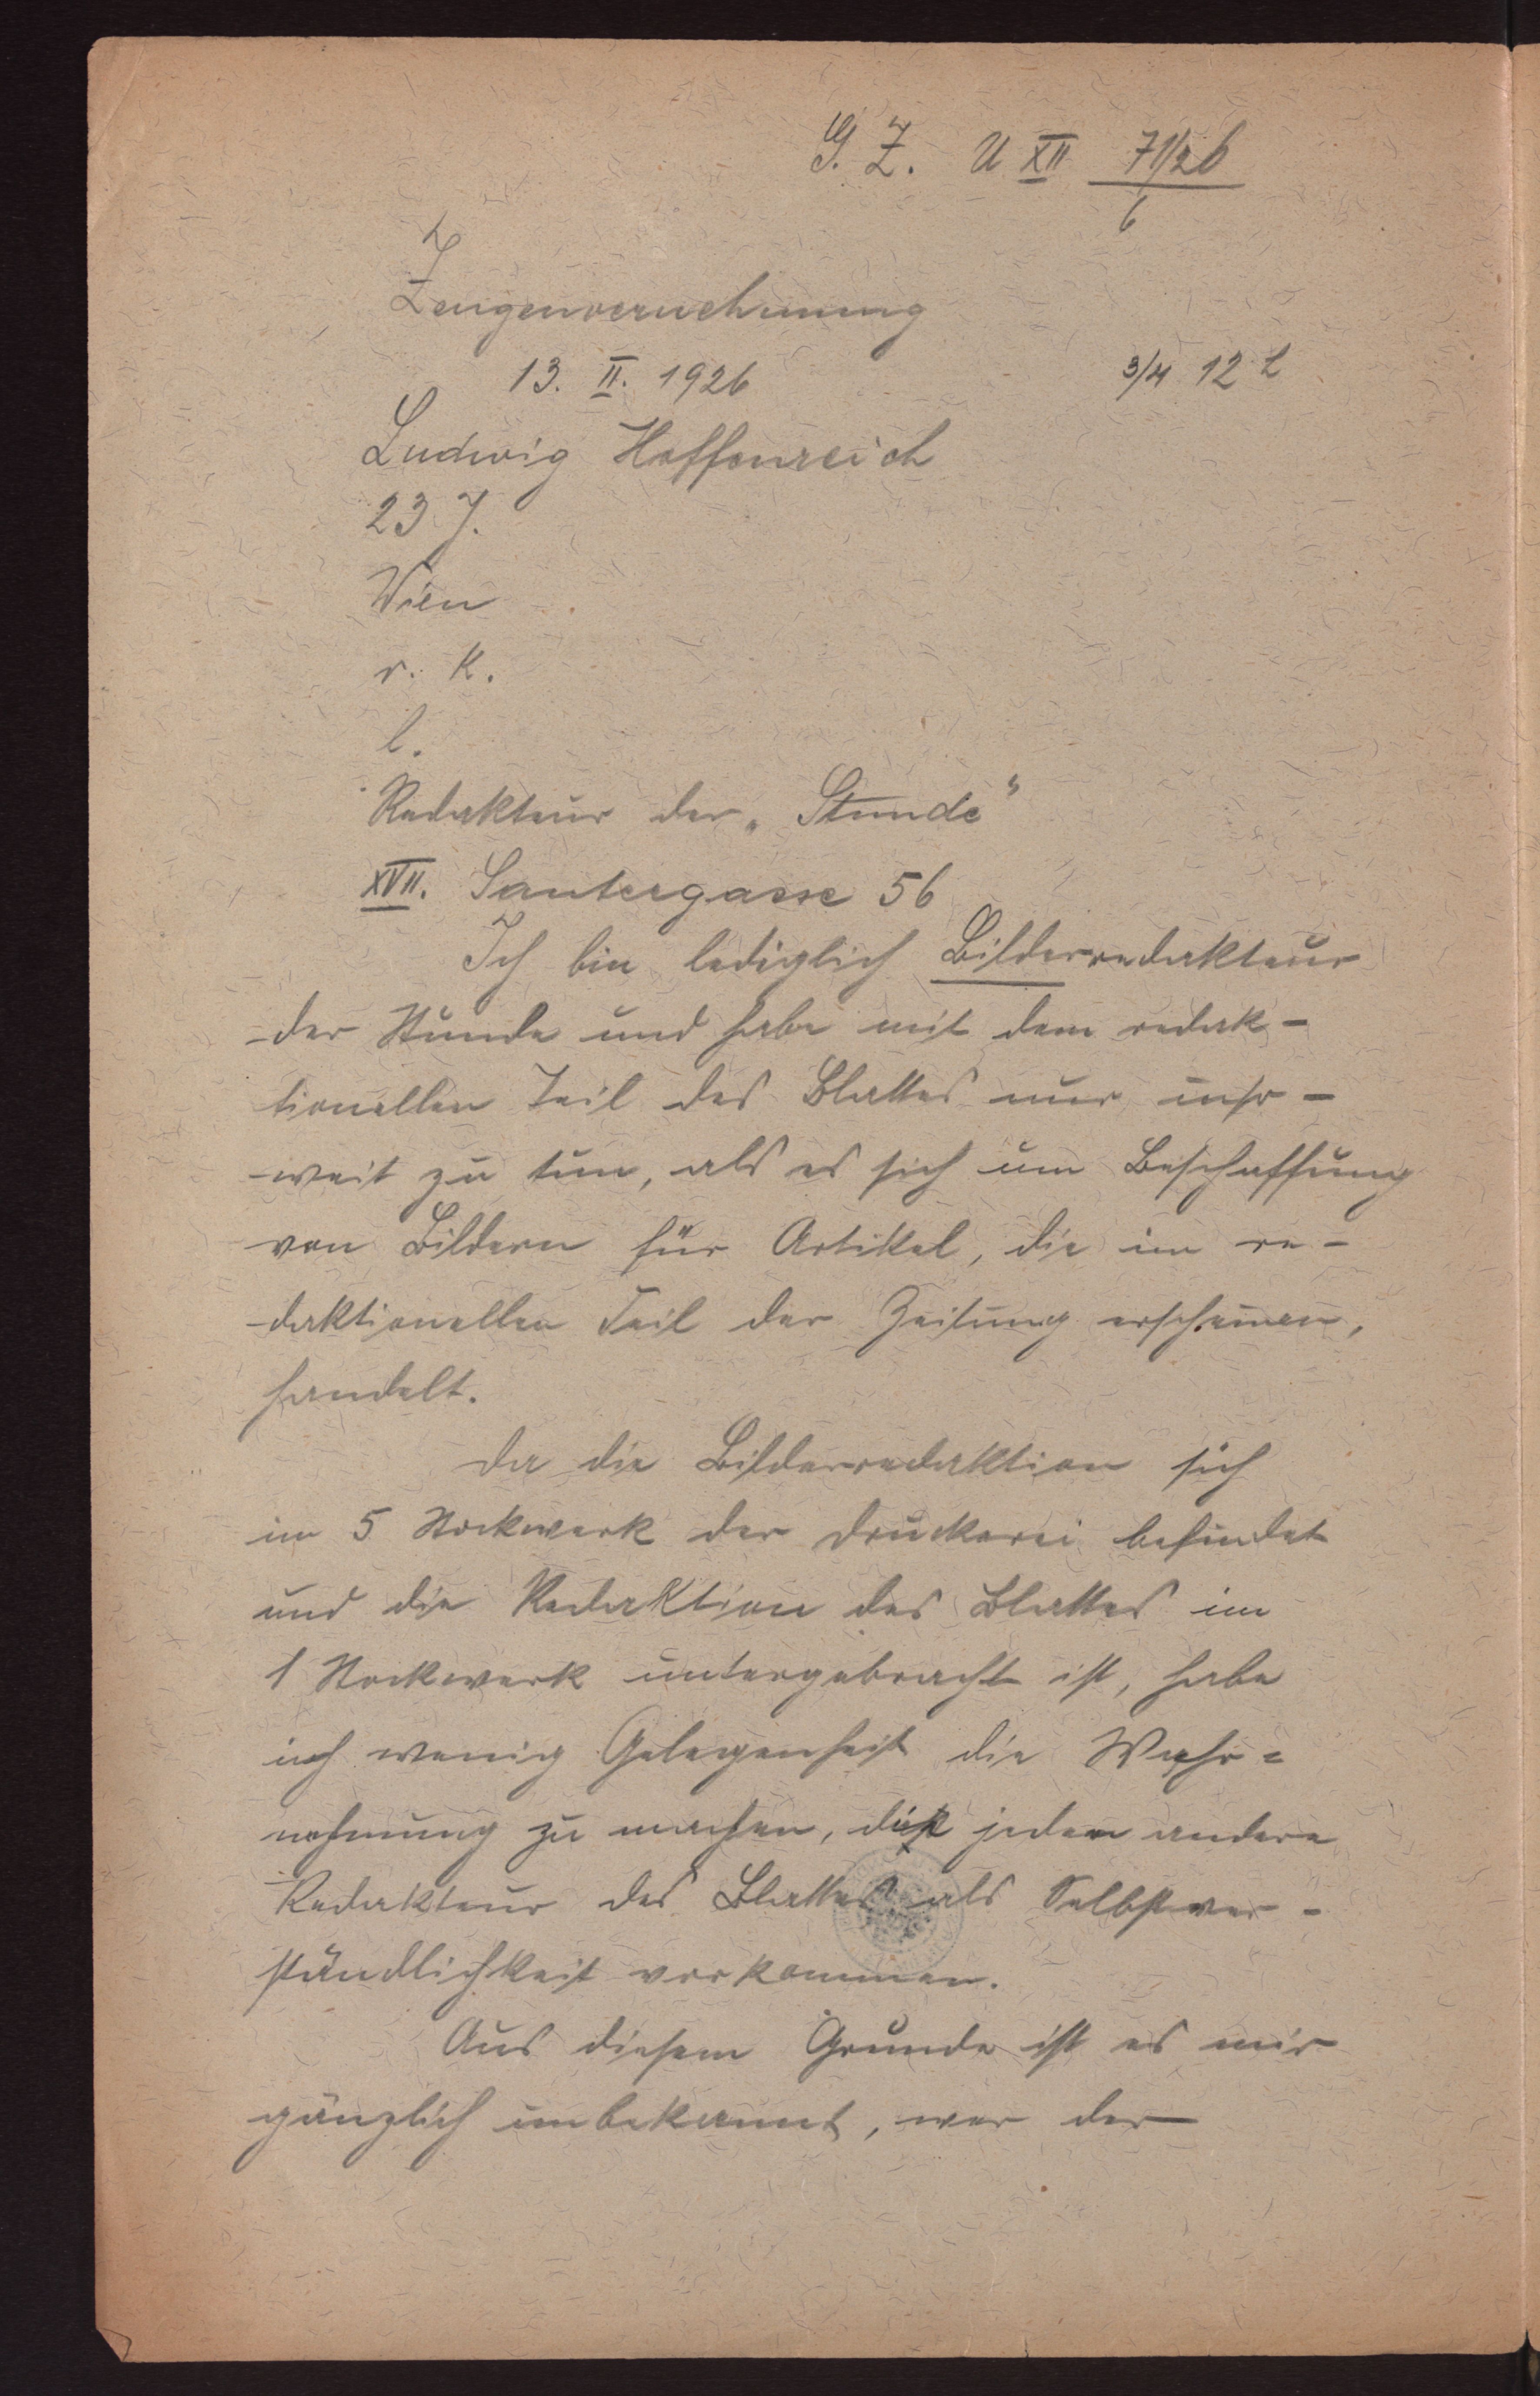 G. Z. U XII 71/26
6
Zeugenvernehmung
13. II. 1926 3/4 12 h
Ludwig Hoffenreich
23 J.
Wien
r. k.
l.
Redakteur der „Stunde“
XVII. Sautergasse 56
Ich bin lediglich Bilderredakteur
der Stunde und habe mit dem redak-
tionellen Teil des Blattes nur inso-
weit zu tun, als es sich um Beschaffung
von Bildern für Artikel, die im re-
daktionellen Teil der Zeitung erscheinen,
handelt.
Da die Bilderredaktion sich
im 5 Stockwerk der Druckerei befindet
und die Redaktion des Blattes im
1 Stockwerk untergebracht ist, habe
ich wenig Gelegenheit die Wahr=
nehmung zu machen, die jedem andere
Redakteur des Blattes als Selbstver-
ständlichkeit vorkommen.
Aus diesem Grunde ist es mir
gänzlich unbekannt, wer der